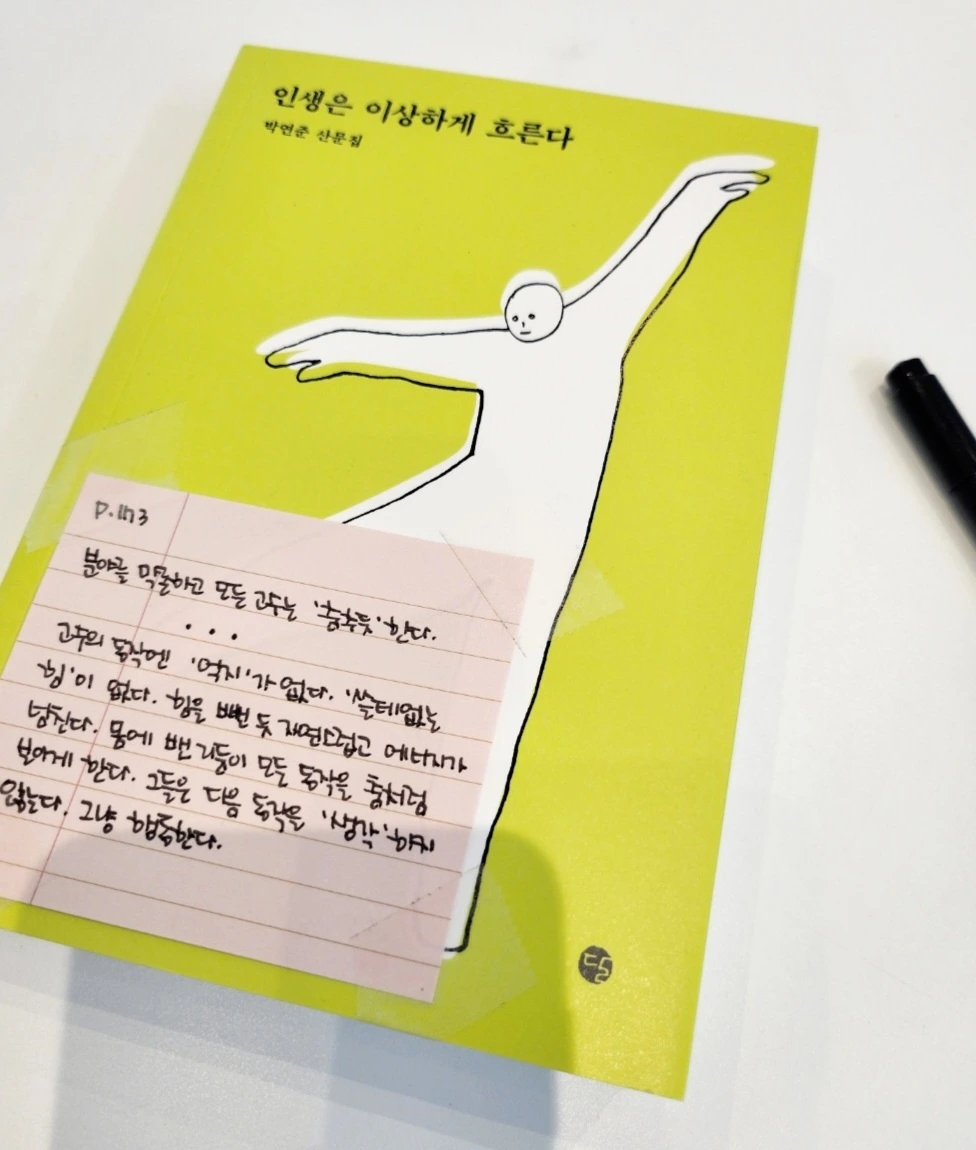 인생은 이상하게 흐른다
박연준 산문집
P.173
분야를 막론하고 모든 고수는 '춤추듯' 한다.
...
고수의 동작엔 '억지'가 없다. '쓸데없는
힘'이 없다. 힘을 뺀 듯 자연스럽고 에너지가
넘친다. 몸에 밴 리듬이 모든 동작을 춤처럼
보이게 한다. 그들은 다음 동작을 '생각'하지
않는다. 그냥 행동한다.
달